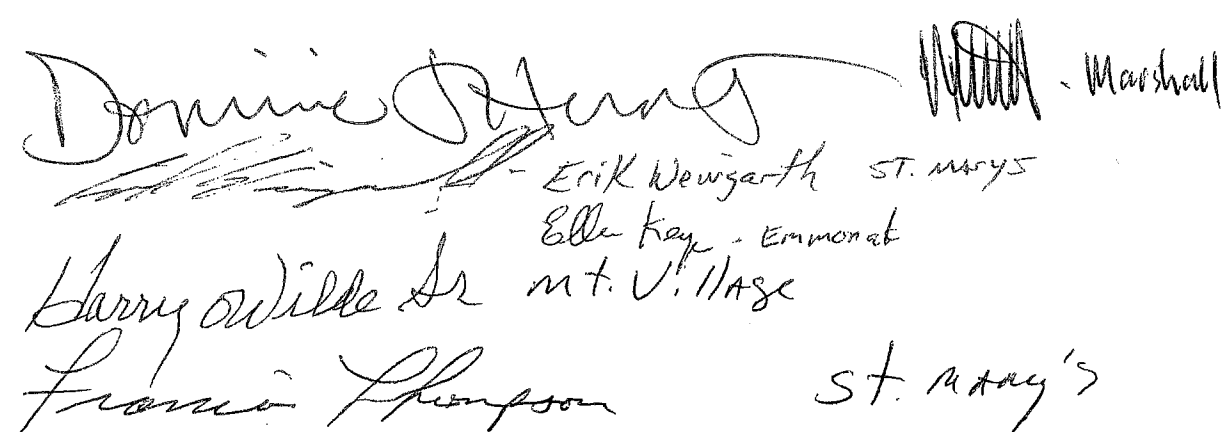 Dominic - Marshall
- Erik Weingarth ST. MARYS
Ellen Keyes - Emmonak
Harry O Wilde Sr Mt. Village
Francis Thompson St. Mary's